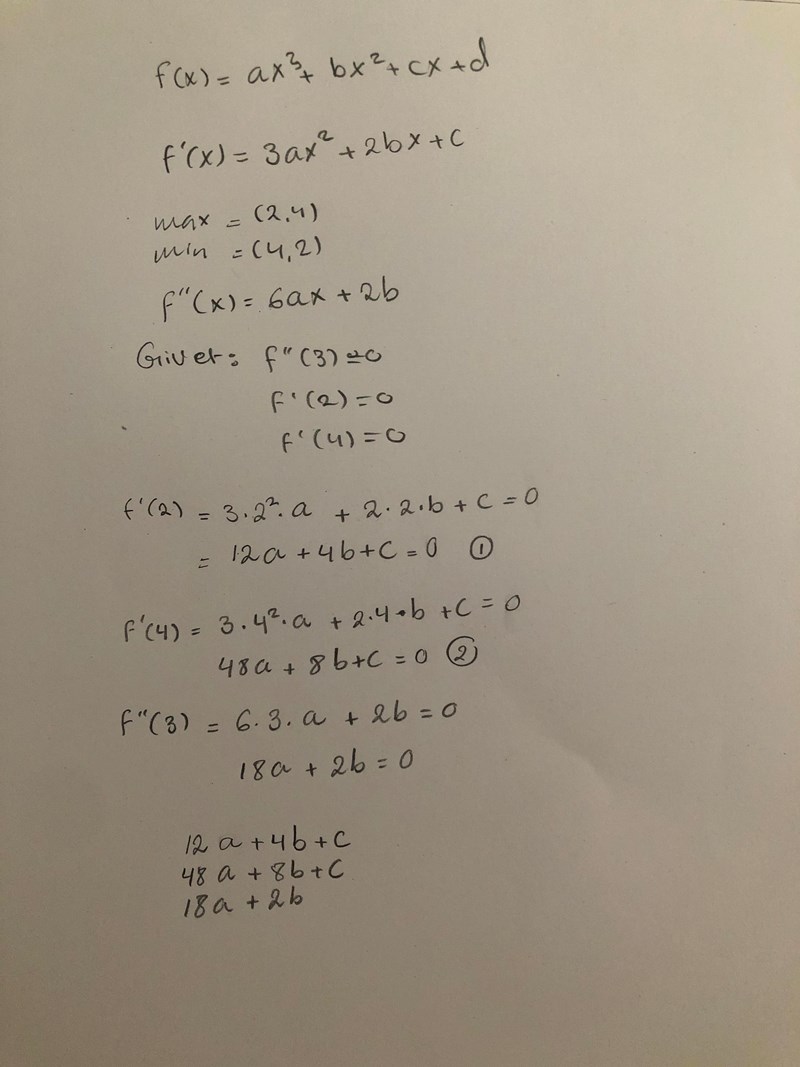 f(x) = ax³ + bx² + cx + d
f'(x) = 3ax² + 2bx + c
max = (2,4)
min = (4,2)
f"(x) = 6ax + 2b
Givet: f"(3) = 0
f'(2) = 0
f'(4) = 0
f'(2) = 3·2²·a + 2·2·b + c = 0
= 12a + 4b + c = 0 ①
f'(4) = 3·4²·a + 2·4·b + c = 0
48a + 8b + c = 0 ②
f"(3) = 6·3·a + 2b = 0
18a + 2b = 0
12a + 4b + c
48a + 8b + c
18a + 2b